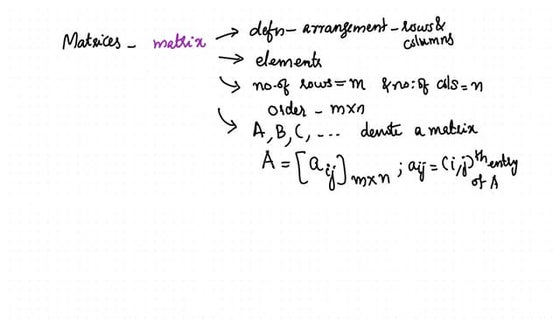 Matrices - matrix → defn - arrangement - rows &
columns
→ elements
↘ no. of rows = m & no: of cols = n
order - m×n
↘ A, B, C, ... denote a matrix
A = [a_ij]_m×n ; aij = (i,j)^th entry
of A